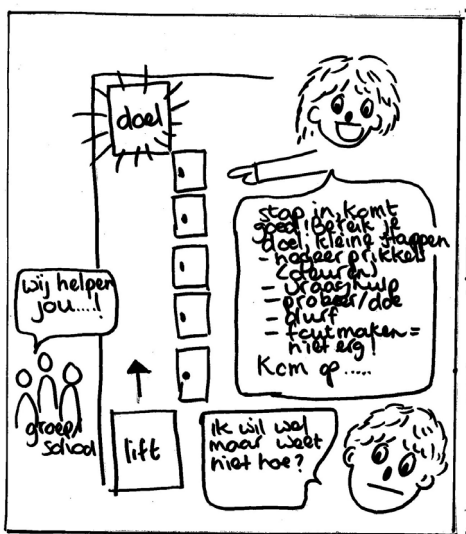 doel
stap in, komt
goed! Bereik je
doel, kleine stappen
- noteer prikkels
(deuren)
- vraag hulp
- probeer/doe
- durf
- fout maken =
niet erg!
Kom op.....
wij helpen
jou....!
groep
school
lift
ik wil wel
maar weet
niet hoe?